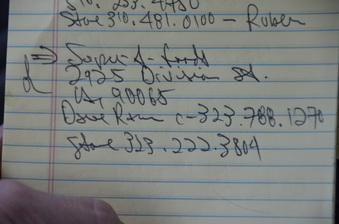 310.253.4750
Store 310.481.0100 - Ruben
Super A-Foods
2925 Division St.
LA, 90065
c-323.788.1270
Store 323.222.3804